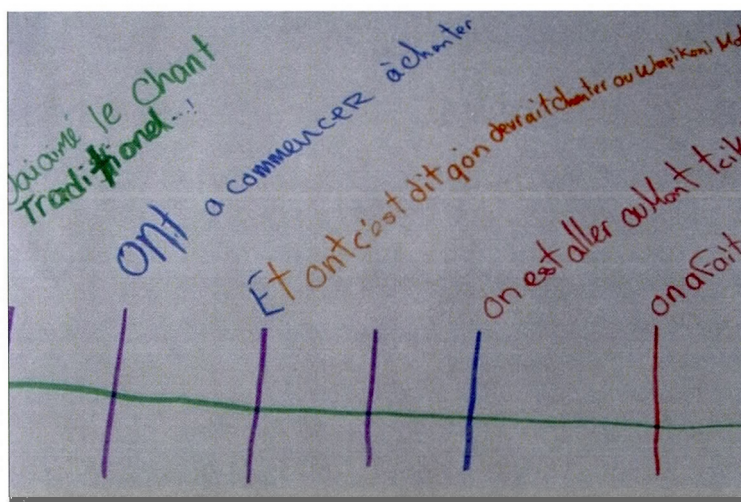 J'ai aimé le chant
Traditionel...!
ont a commencer à chanter
Et ont c'est dit qon devrait chanter au Wapikoni
on est aller au Mont
on a Fait